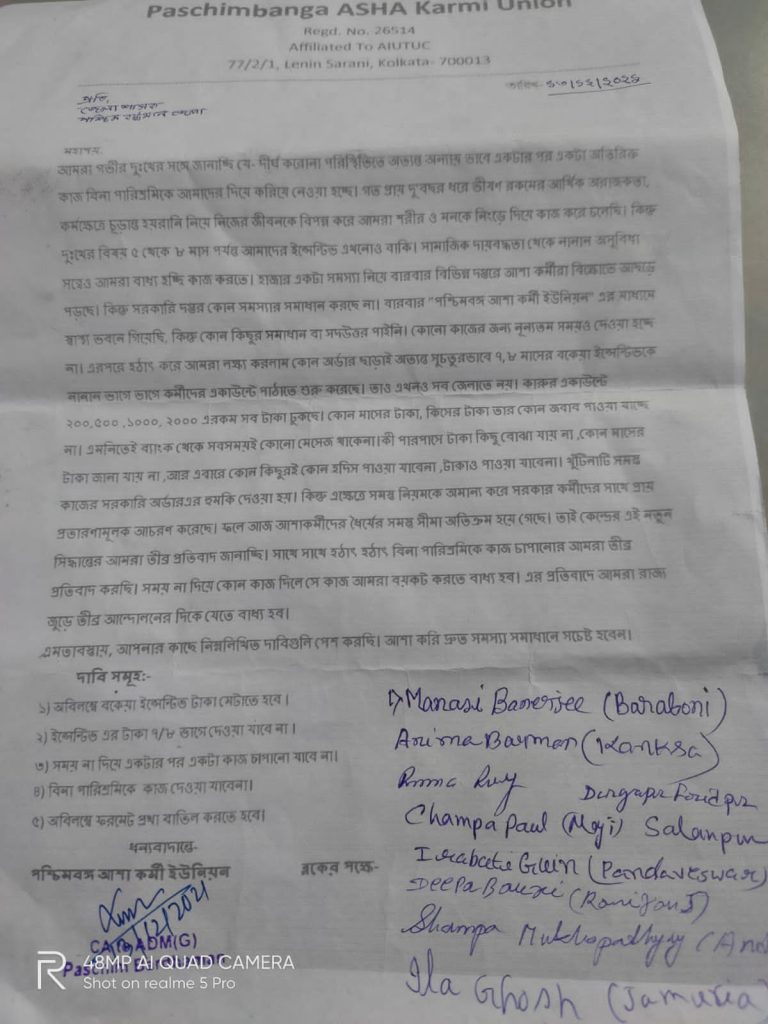 Paschimbanga ASHA Karmi Union
Regd. No. 26514
Affiliated To AIUTUC
77/2/1, Lenin Sarani, Kolkata- 700013
তারিখ-
প্রতি,
জেলা শাসক
পশ্চিম বর্ধমান জেলা
মহাশয়,
আমরা গভীর দুঃখের সঙ্গে জানাচ্ছি যে- দীর্ঘ করোনা পরিস্থিতিতে অত্যন্ত অন্যায় ভাবে একটার পর একটা অতিরিক্ত
কাজ বিনা পারিশ্রমিকে আমাদের দিয়ে করিয়ে নেওয়া হচ্ছে। গত প্রায় দু'বছর ধরে ভীষণ রকমের আর্থিক অরাজকতা,
কর্মক্ষেত্রে চূড়ান্ত হয়রানি নিয়ে নিজের জীবনকে বিপন্ন করে আমরা শরীর ও মনকে নিংড়ে দিয়ে কাজ করে চলেছি। কিন্তু
দুঃখের বিষয় ৫ থেকে ৮ মাস পর্যন্ত আমাদের ইন্সেন্টিভ এখনোও বাকি। সামাজিক দায়বদ্ধতা থেকে নানান অসুবিধা
সত্ত্বেও আমরা বাধ্য হচ্ছি কাজ করতে। হাজার একটা সমস্যা নিয়ে বারবার বিভিন্ন দপ্তরে আশা কর্মীরা বিক্ষোভে আছড়ে
পড়ছে। কিন্তু সরকারি দপ্তর কোন সমস্যার সমাধান করছে না। বারবার "পশ্চিমবঙ্গ আশা কর্মী ইউনিয়ন" এর মাধ্যমে
স্বাস্থ্য ভবনে গিয়েছি, কিন্তু কোন কিছুর সমাধান বা সদউত্তর পাইনি। কোনো কাজের জন্য নূন্যতম সময়ও দেওয়া হচ্ছে
না। এরপরে হঠাৎ করে আমরা লক্ষ্য করলাম কোন অর্ডার ছাড়াই অত্যন্ত সুচতুরভাবে ৭,৮ মাসের বকেয়া ইন্সেন্টিভকে
নানান ভাগে ভাগে কর্মীদের একাউন্টে পাঠাতে শুরু করেছে। তাও এখনও সব জেলাতে নয়। কারুর একাউন্টে
২০০,৫০০ ,১০০০, ২০০০ এরকম সব টাকা ঢুকছে। কোন মাসের টাকা, কিসের টাকা তার কোন জবাব পাওয়া যাচ্ছে
না। এমনিতেই ব্যাংক থেকে সবসময়ই কোনো মেসেজ থাকেনা।কী পারপাসে টাকা কিছু বোঝা যায় না ,কোন মাসের
টাকা জানা যায় না ,আর এবারে কোন কিছুরই কোন হদিস পাওয়া যাবেনা ,টাকাও পাওয়া যাবেনা। খুঁটিনাটি সমস্ত
কাজের সরকারি অর্ডারএর হুমকি দেওয়া হয়। কিন্তু এক্ষেত্রে সমস্ত নিয়মকে অমান্য করে সরকার কর্মীদের সাথে প্রায়
প্রতারণামূলক আচরণ করেছে। ফলে আজ আশাকর্মীদের ধৈর্যের সমস্ত সীমা অতিক্রম হয়ে গেছে। তাই কেন্দ্রের এই নতুন
সিদ্ধান্তের আমরা তীব্র প্রতিবাদ জানাচ্ছি। সাথে সাথে হঠাৎ হঠাৎ বিনা পারিশ্রমিকে কাজ চাপানোর আমরা তীব্র
প্রতিবাদ করছি। সময় না দিয়ে কোন কাজ দিলে সে কাজ আমরা বয়কট করতে বাধ্য হব। এর প্রতিবাদে আমরা রাজ্য
জুড়ে তীব্র আন্দোলনের দিকে যেতে বাধ্য হব।
এমতাবস্থায়, আপনার কাছে নিম্নলিখিত দাবিগুলি পেশ করছি। আশা করি দ্রুত সমস্যা সমাধানে সচেষ্ট হবেন।
দাবি সমূহ:-
১) অবিলম্বে বকেয়া ইন্সেন্টিভ টাকা মেটাতে হবে।
২) ইন্সেন্টিভ এর টাকা ৭/৮ ভাগে দেওয়া যাবে না।
৩) সময় না দিয়ে একটার পর একটা কাজ চাপানো যাবে না।
৪) বিনা পারিশ্রমিকে কাজ দেওয়া যাবেনা।
৫) অবিলম্বে ফরমেট প্রথা বাতিল করতে হবে।
ধন্যবাদান্তে-
পশ্চিমবঙ্গ আশা কর্মী ইউনিয়ন ব্লকের পক্ষে-
Manasi Banerjee (Baraboni)
Anima Barman (Kanksa)
Ruma Ruy Durgapur Faridpur
Champa Paul (Maji) Salanpur
Irabati Guin (Pandaveswar)
Deepa Bauri (Raniganj)
Shampa Mukhopadhyay (And
Ila Ghosh (Jamuria)
/12/2021
ADM(G)
Paschim Bardhaman
48MP AI QUAD CAMERA
Shot on realme 5 Pro